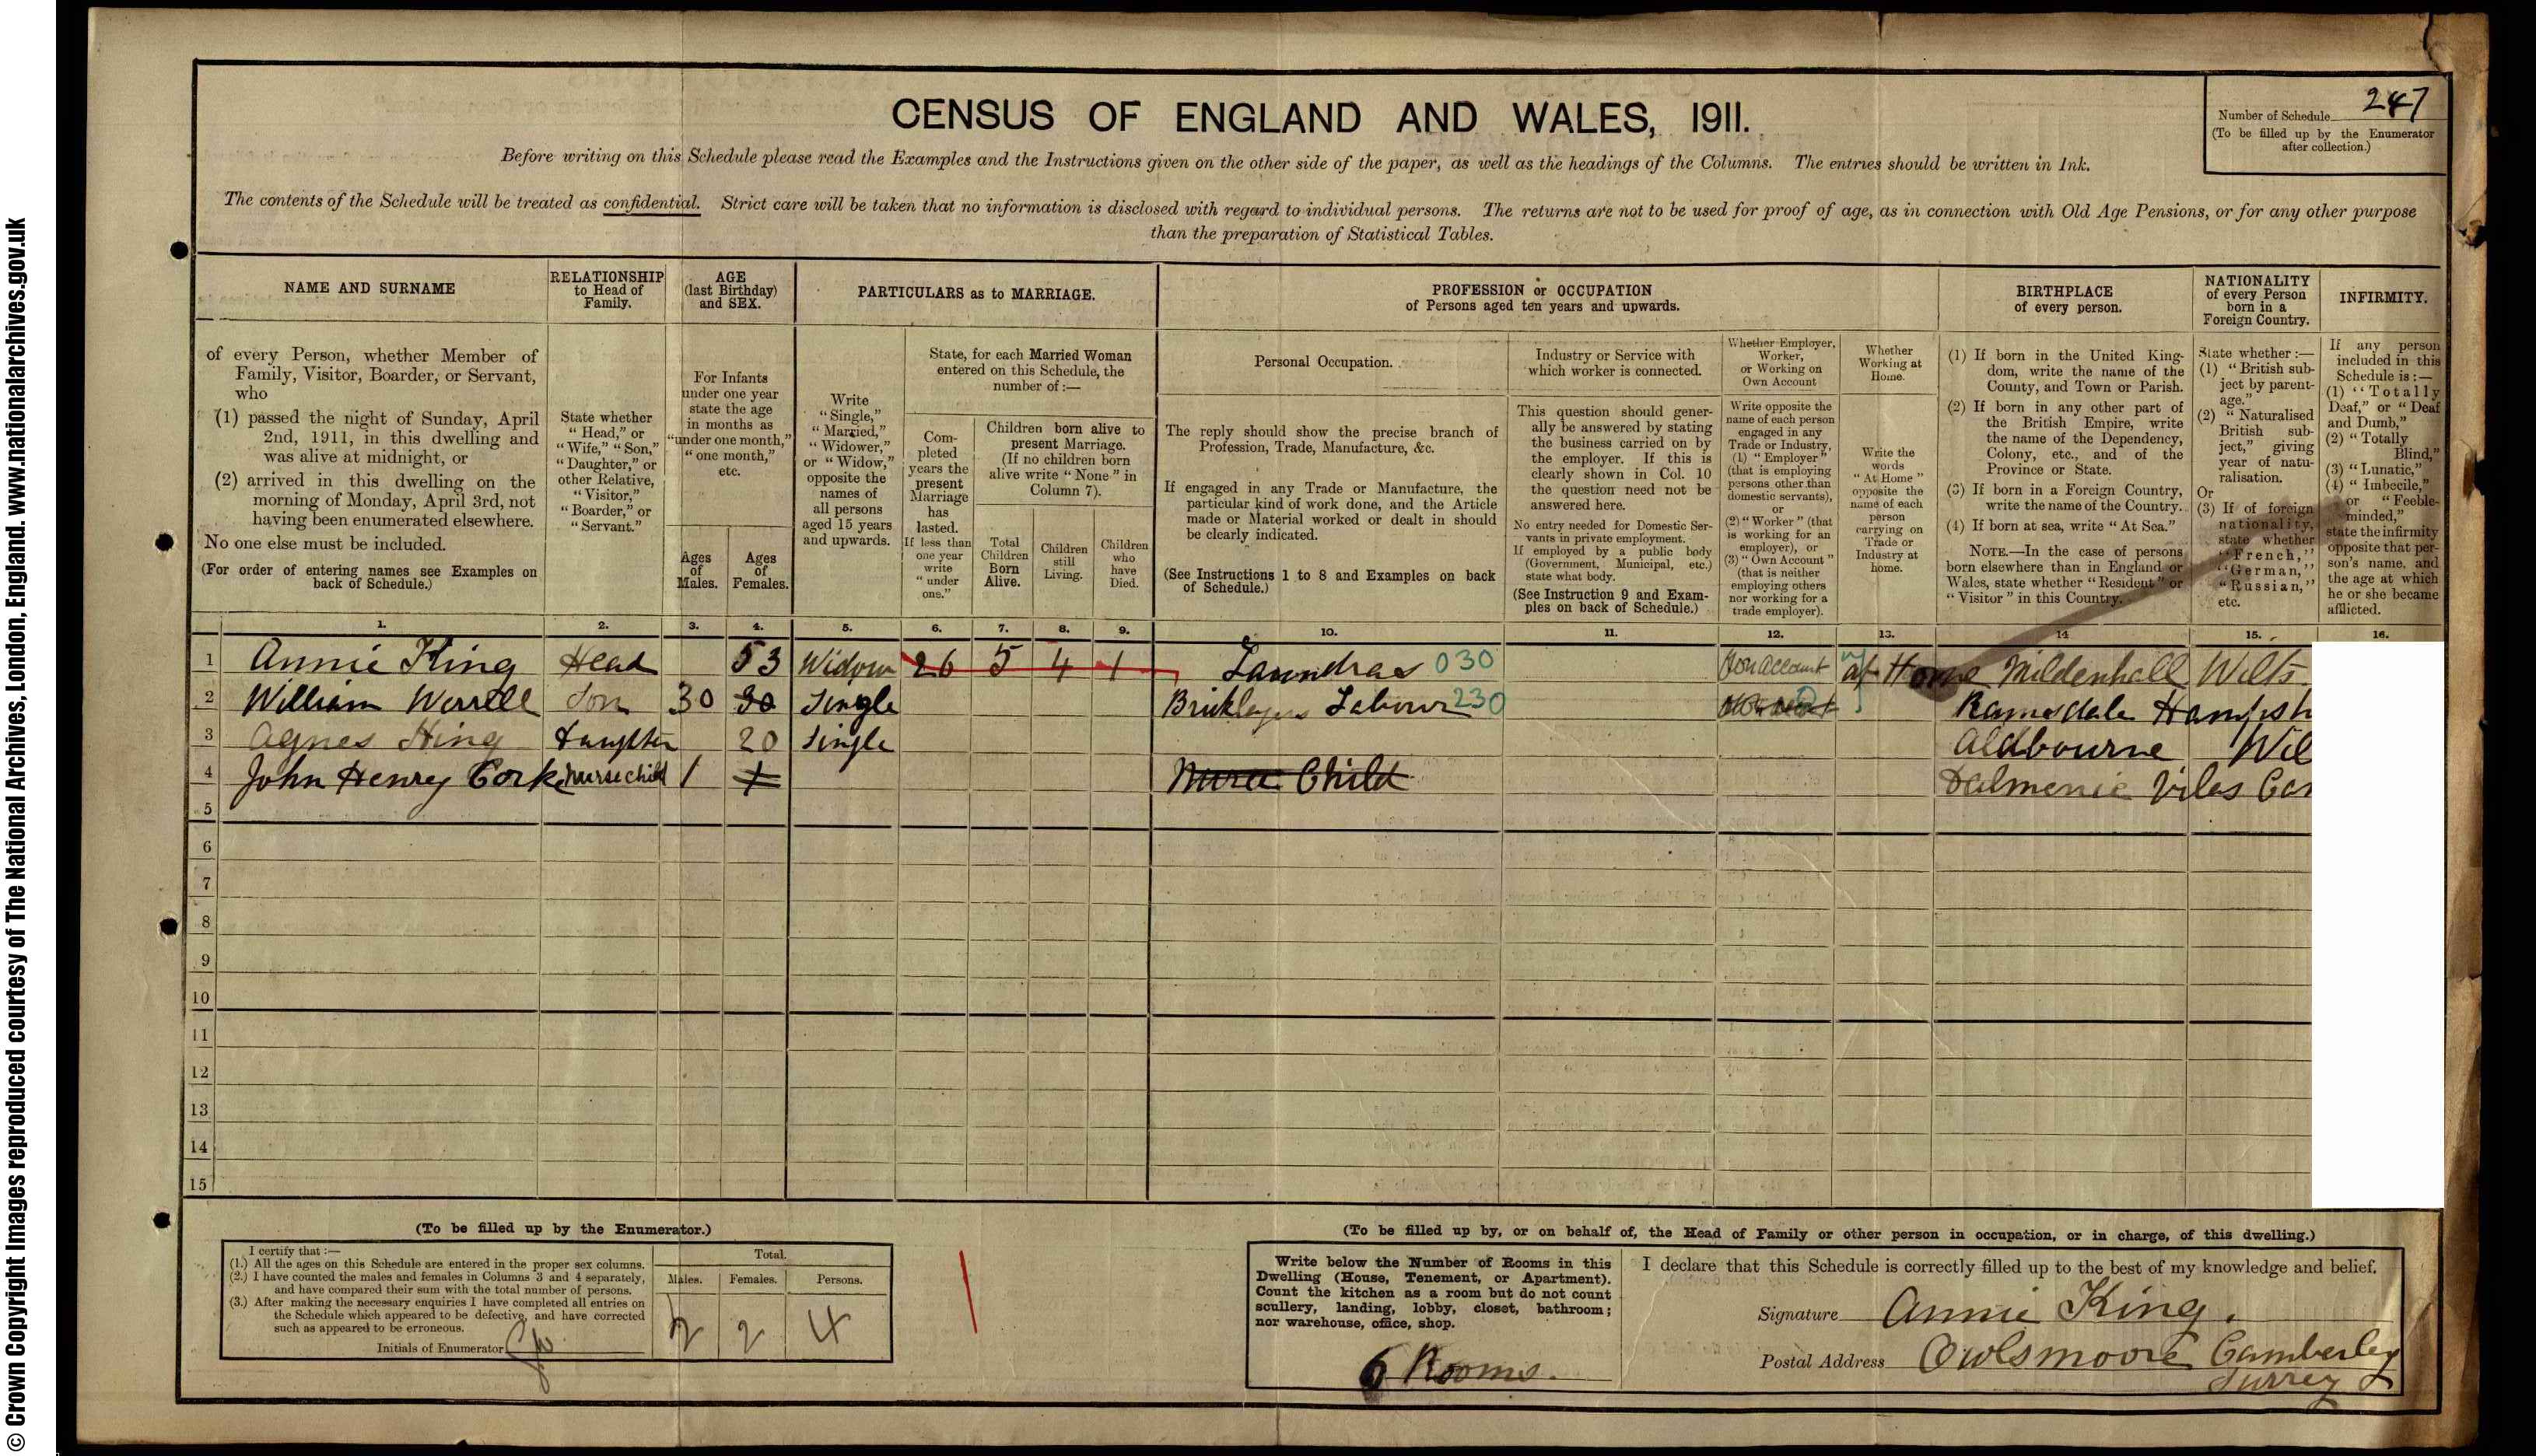 © Crown Copyright Images reproduced courtesy of The National Archives, London, England. www.nationalarchives.gov.uk
CENSUS OF ENGLAND AND WALES, 1911.
Number of Schedule 247
(To be filled up by the Enumerator
after collection.)
Before writing on this Schedule please read the Examples and the Instructions given on the other side of the paper, as well as the headings of the Columns. The entries should be written in Ink.
The contents of the Schedule will be treated as confidential. Strict care will be taken that no information is disclosed with regard to individual persons. The returns are not to be used for proof of age, as in connection with Old Age Pensions, or for any other purpose
than the preparation of Statistical Tables.
NAME AND SURNAME
of every Person, whether Member of
Family, Visitor, Boarder, or Servant,
who
(1) passed the night of Sunday, April
2nd, 1911, in this dwelling and
was alive at midnight, or
(2) arrived in this dwelling on the
morning of Monday, April 3rd, not
having been enumerated elsewhere.
No one else must be included.
(For order of entering names see Examples on
back of Schedule.)
RELATIONSHIP
to Head of
Family.
State whether
"Head," or
"Wife," "Son,"
"Daughter," or
other Relative,
"Visitor,"
"Boarder," or
"Servant."
AGE
(last Birthday)
and SEX.
For Infants
under one year
state the age
in months as
"under one month,"
"one month,"
etc.
Ages
of
Males.
Ages
of
Females.
PARTICULARS as to MARRIAGE.
Write
"Single,"
"Married,"
"Widower,"
or "Widow,"
opposite the
names of
all persons
aged 15 years
and upwards.
State, for each Married Woman
entered on this Schedule, the
number of:—
Com-
pleted
years the
present
Marriage
has
lasted.
If less than
one year
write
"under
one."
Children born alive to
present Marriage.
(If no children born
alive write "None" in
Column 7).
Total
Children
Born
Alive.
Children
still
Living.
Children
who
have
Died.
PROFESSION or OCCUPATION
of Persons aged ten years and upwards.
Personal Occupation.
The reply should show the precise branch of
Profession, Trade, Manufacture, &c.
If engaged in any Trade or Manufacture, the
particular kind of work done, and the Article
made or Material worked or dealt in should
be clearly indicated.
(See Instructions 1 to 8 and Examples on back
of Schedule.)
Industry or Service with
which worker is connected.
This question should gener-
ally be answered by stating
the business carried on by
the employer. If this is
clearly shown in Col. 10
the question need not be
answered here.
No entry needed for Domestic Ser-
vants in private employment.
If employed by a public body
(Government, Municipal, etc.)
state what body.
(See Instruction 9 and Exam-
ples on back of Schedule.)
Whether Employer,
Worker,
or Working on
Own Account
Write opposite the
name of each person
engaged in any
Trade or Industry,
(1) "Employer"
(that is employing
persons other than
domestic servants),
or
(2) "Worker" (that
is working for an
employer), or
(3) "Own Account"
(that is neither
employing others
nor working for a
trade employer).
Whether
Working at
Home.
Write the
words
"At Home"
opposite the
name of each
person
carrying on
Trade or
Industry at
home.
BIRTHPLACE
of every person.
(1) If born in the United King-
dom, write the name of the
County, and Town or Parish.
(2) If born in any other part of
the British Empire, write
the name of the Dependency,
Colony, etc., and of the
Province or State.
(3) If born in a Foreign Country,
write the name of the Country.
(4) If born at sea, write "At Sea."
NOTE.—In the case of persons
born elsewhere than in England or
Wales, state whether "Resident" or
"Visitor" in this Country.
NATIONALITY
of every Person
born in a
Foreign Country.
State whether:—
(1) "British sub-
ject by parent-
age."
(2) "Naturalised
British sub-
ject," giving
year of natu-
ralisation.
Or
(3) If of foreign
nationality,
state whether
"French,"
"German,"
"Russian,"
etc.
INFIRMITY.
If any person
included in this
Schedule is:—
(1) "Totally
Deaf," or "Deaf
and Dumb,"
(2) "Totally
Blind,"
(3) "Lunatic,"
(4) "Imbecile,"
or "Feeble-
minded,"
state the infirmity
opposite that per-
son's name, and
the age at which
he or she became
afflicted.
1. 2. 3. 4. 5. 6. 7. 8. 9. 10. 11. 12. 13. 14 15. 16.
1 Annie King Head 53 Widow 26 5 4 1 Laundras 030 Own account at Home Mildenhall Wilts.
2 William Worrell Son 30 30 Single Bricklayers Labour 230 Ramsdale Hampsh
3 Agnes King Daughter 20 Single Aldbourne Wil
4 John Henry Cork nurse child 1 1 Nurse Child Dalmenie Vilas Cam
5
6
7
8
9
10
11
12
13
14
15
(To be filled up by the Enumerator.)
I certify that:—
(1.) All the ages on this Schedule are entered in the proper sex columns.
(2.) I have counted the males and females in Columns 3 and 4 separately,
and have compared their sum with the total number of persons.
(3.) After making the necessary enquiries I have completed all entries on
the Schedule which appeared to be defective, and have corrected
such as appeared to be erroneous.
Initials of Enumerator
Total.
Males. Females. Persons.
2 2 4
(To be filled up by, or on behalf of, the Head of Family or other person in occupation, or in charge, of this dwelling.)
Write below the Number of Rooms in this
Dwelling (House, Tenement, or Apartment).
Count the kitchen as a room but do not count
scullery, landing, lobby, closet, bathroom;
nor warehouse, office, shop.
6 Rooms.
I declare that this Schedule is correctly filled up to the best of my knowledge and belief.
Signature Annie King.
Postal Address Owlsmoore Camberley
Surrey